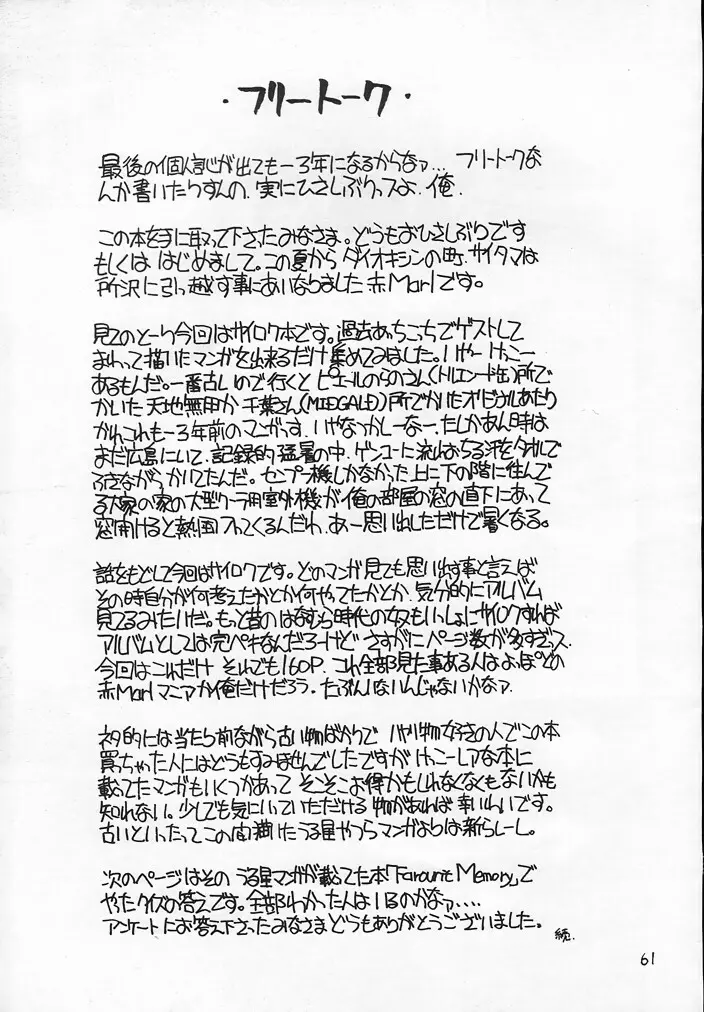 ・フリートーク・
最後の個人誌が出ても一3年になるからなァ… フリートークな
んか書いたりすんの、実にひさしぶりっスよ、俺.
この本を手に取って下さったみなさま。どうもおひさしぶりです
もしくは はじめまして。この夏から ダイオキシンの町、サイタマは
所沢に引っ越す事にあいなりました赤Marlです。
見てのとーり今回はサイロク本です。過去あっちこっちでゲストして
まわって描いたマンガを出来るだけ集めてみました。いやー けっこー
あるもんだ。一番古いので行くと ピエールのらのさん(トルエンド缶)所で
かいた 天地無用か 千葉さん(MIDGALD)所でかいたオリジナルあたり
かね これも一3年前のマンガっす. いやなつかしーなー. たしかあん時は
まだ広島にいて、記録的猛暑の中、ゲンコーに流れおちる汗をタオルで
ふきながら かいてたんだ。センプー機しかなかった上に下の階に住んで
る大家の家の大型クーラー用室外機が俺の部屋の窓の直下にあって
窓開けると熱風入ってくるんだわ、あー思い出しただけで暑くなる。
話をもどして今回はサイロクです。どのマンガ見ても思い出す事と言えば
その時自分が何考えたかとか何やってたかとか、気分的にアルバム
見てるみたいだ。もっと昔のはなむら時代の奴もいっしょにサイロクすれば
アルバムとしては完ペキなんだろーけど さすがに ページ数が多すぎっス.
今回はこれだけ それでも160P. これ全部見た事ある人はよっぽどの
赤Marlマニアか俺だけだろう. たぶんいないんじゃないかなァ.
ネタ的には当たり前ながら古い物ばかりで ハヤリ物好きの人でこの本
買っちゃった人にはどうもすみませんでしたですが けっこーレアな本に
載ってたマンガもいくつかあって そこそこお得かもしれなくなくもないかも
知れない。少しでも気にいっていただける物があれば 幸いです。
古いといったって この間描いたうる星やつらマンガよりは新らしーし。
次のページはその うる星マンガが載ってた本「Favourit Memory」で
やったクイズの答えです。全部わかった人はいるのかなァ....
アンケートにお答え下さったみなさまどうもありがとうございました。
続.
61